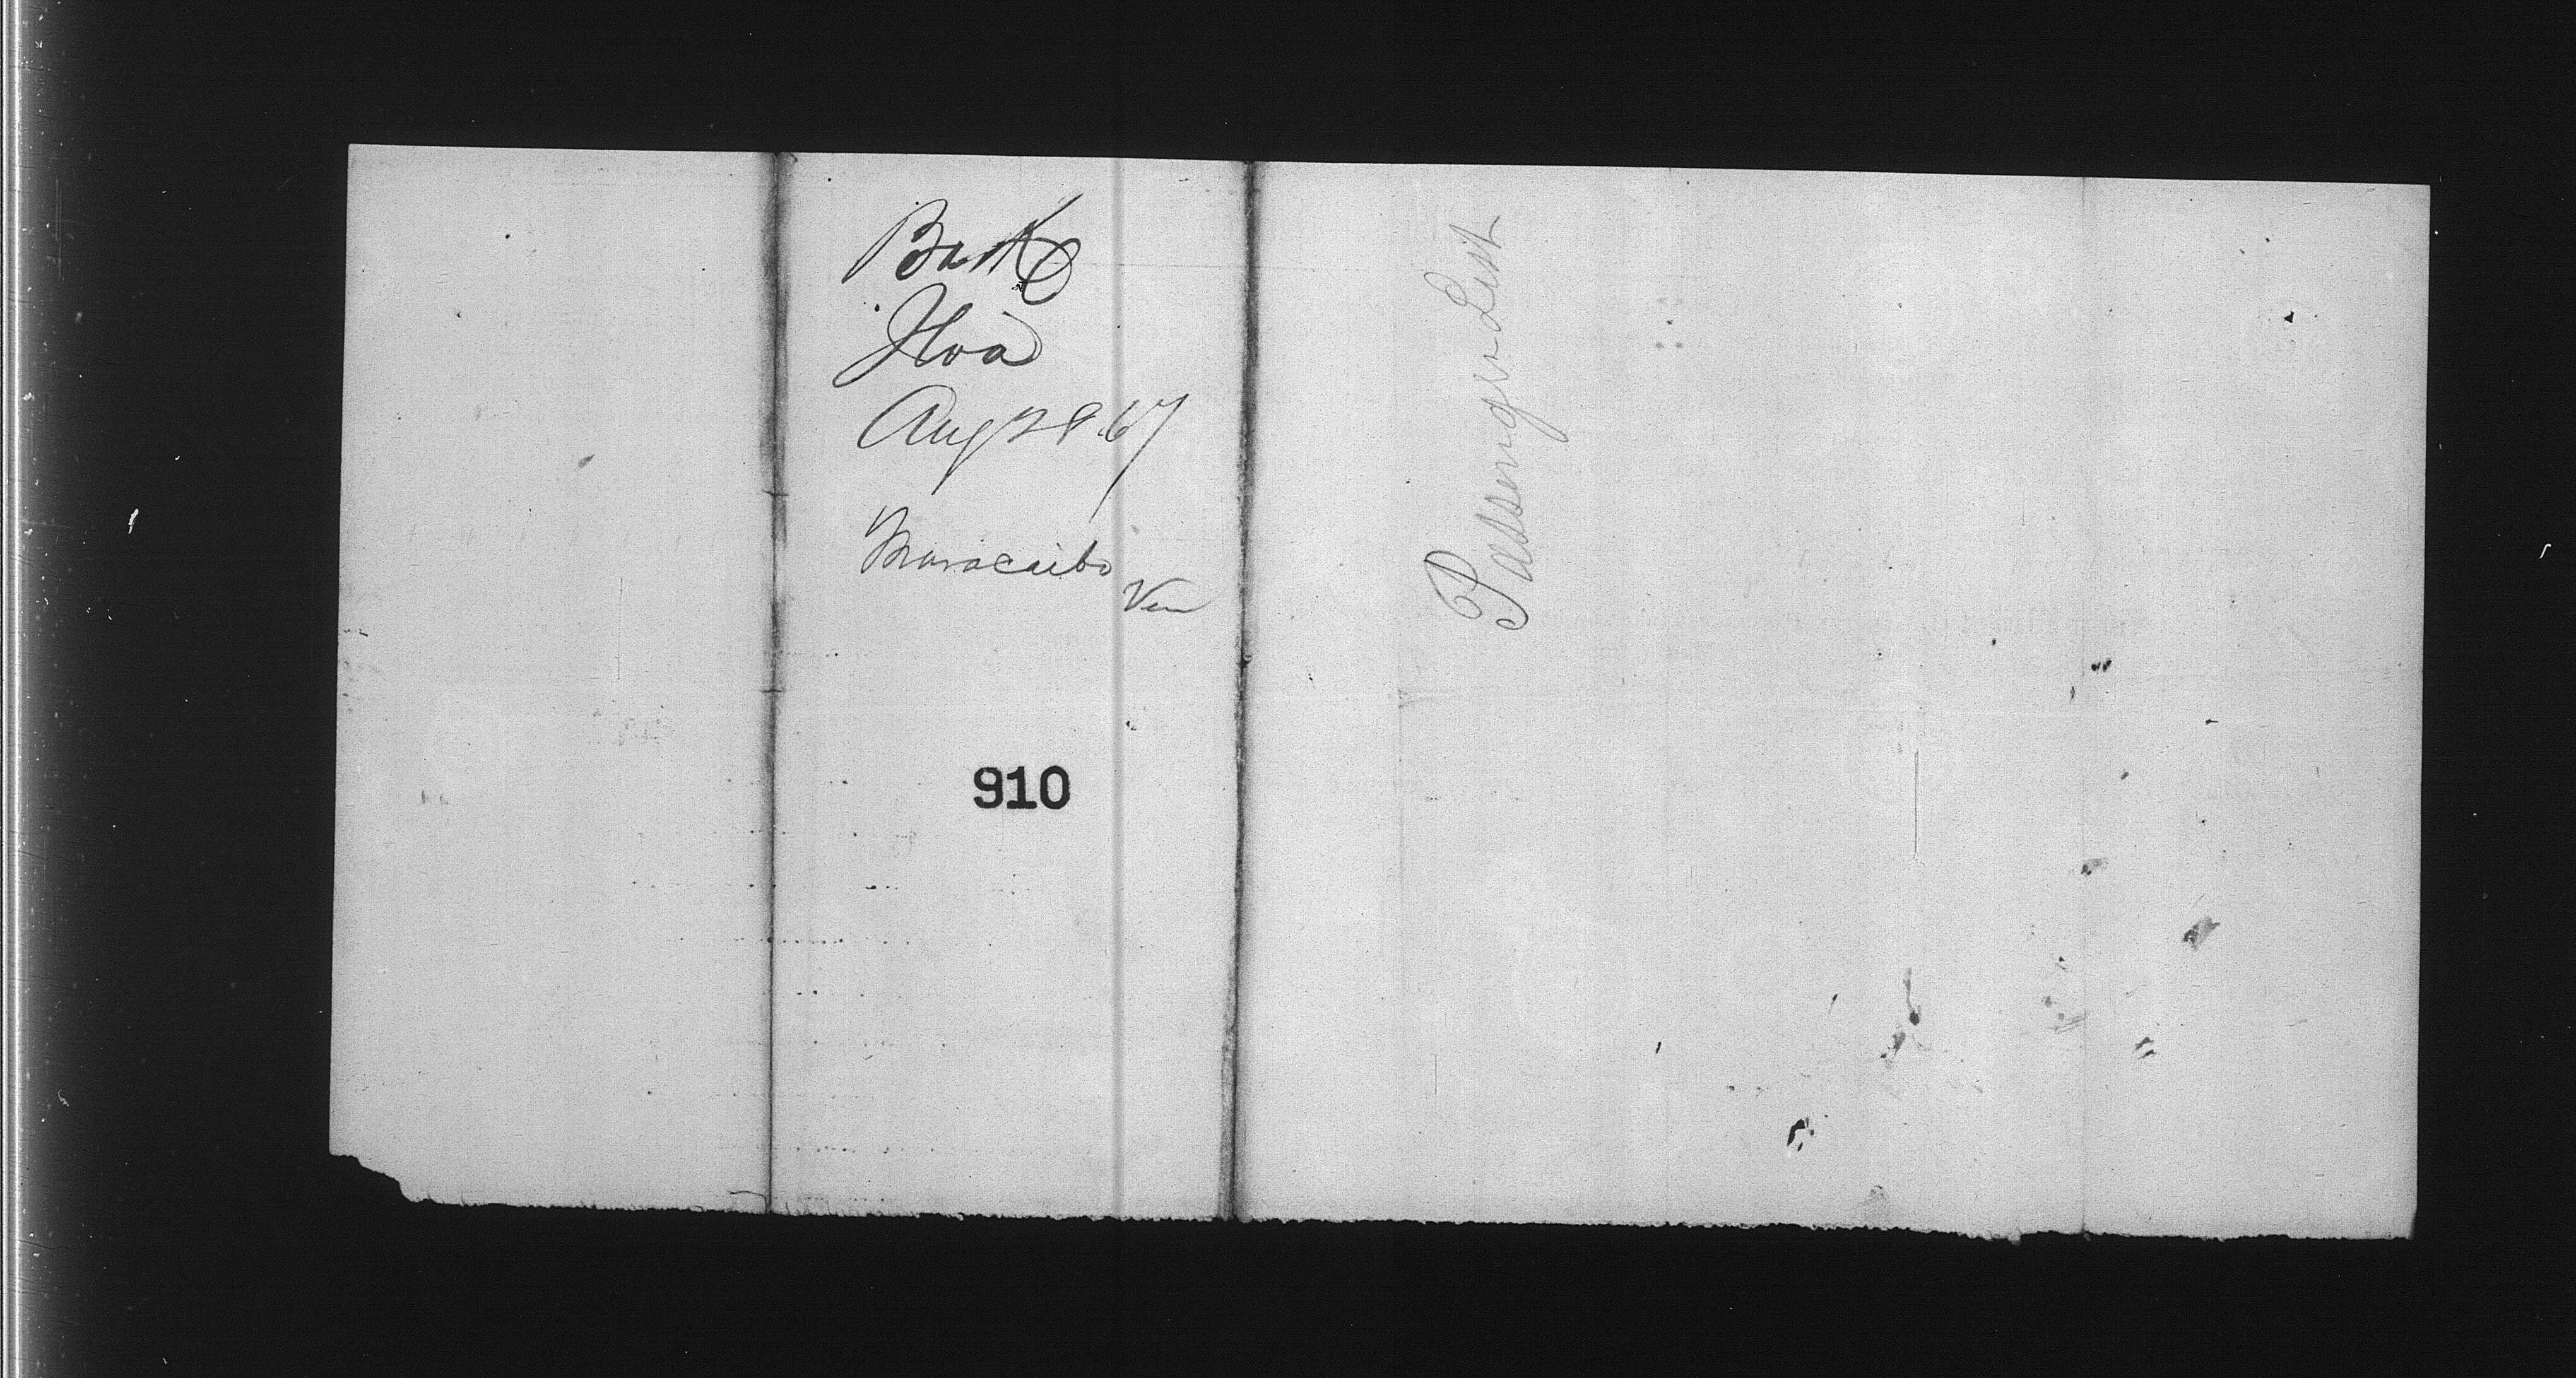 Bark
Iloa
Aug 28. 67
Maracaibo
Ven
910
Passenger List